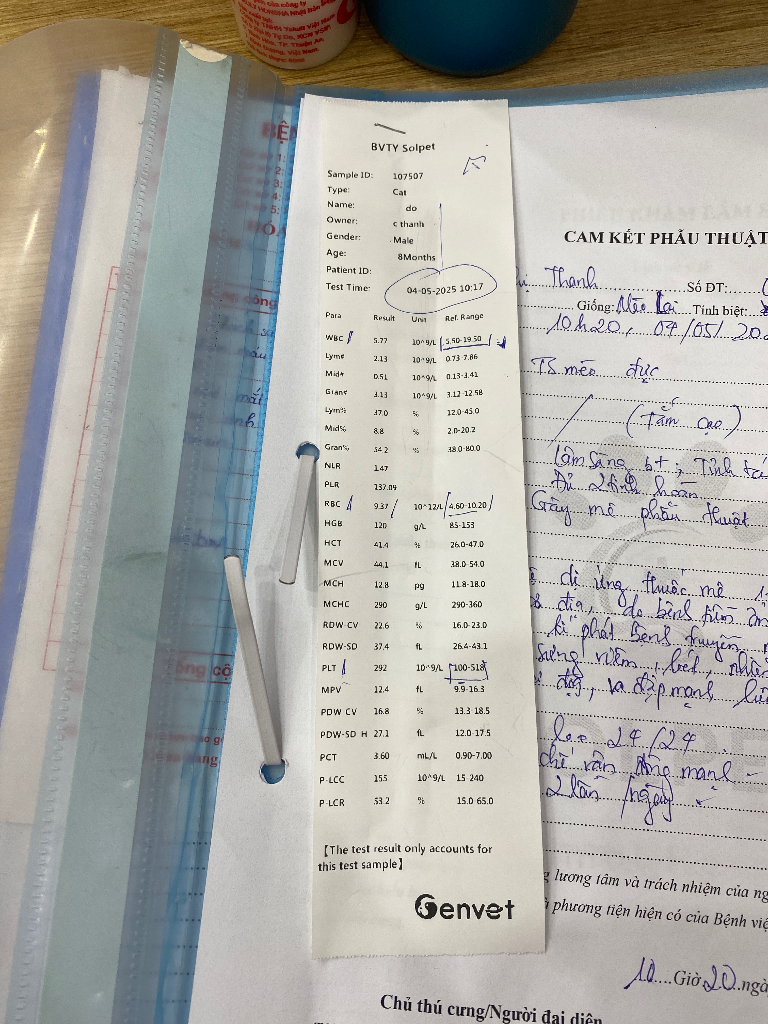 BVTY Solpet
Sample ID: 107507
Type: Cat
Name: do
Owner: c thanh
Gender: Male
Age: 8Months
Patient ID:
Test Time: 04-05-2025 10:17
Para Result Unit Ref. Range
WBC 5.77 10^9/L 5.50-19.50
Lym# 2.13 10^9/L 0.73-7.86
Mid# 0.51 10^9/L 0.13-3.41
Gran# 3.13 10^9/L 3.12-12.58
Lym% 37.0 % 12.0-45.0
Mid% 8.8 % 2.0-20.2
Gran% 54.2 % 38.0-80.0
NLR 1.47
PLR 137.09
RBC 9.37 10^12/L 4.60-10.20
HGB 120 g/L 85-153
HCT 41.4 % 26.0-47.0
MCV 44.1 fL 38.0-54.0
MCH 12.8 pg 11.8-18.0
MCHC 290 g/L 290-360
RDW-CV 22.6 % 16.0-23.0
RDW-SD 37.4 fL 26.4-43.1
PLT 292 10^9/L 100-518
MPV 12.4 fL 9.9-16.3
PDW-CV 16.8 % 13.3-18.5
PDW-SD H 27.1 fL 12.0-17.5
PCT 3.60 mL/L 0.90-7.00
P-LCC 155 10^9/L 15-240
P-LCR 53.2 % 15.0-65.0
【The test result only accounts for
this test sample】
Genvet
CAM KẾT PHẪU THUẬT
Thanh Số ĐT:
Giống: Mèo Lai Tính biệt:
10h20, 04/05/20
TS mèo đực
(Tắm cạo)
Lâm sàng bt, Tỉnh tá
Đủ 2 tinh hoàn
Gây mê phẫu thuật
dị ứng thuốc mê
địa, do bệnh tiềm ẩn
phát bệnh truyền
sưng viêm,
va đập mạnh
leo 24/24
chế vận động mạnh
2 lần /ngày
lương tâm và trách nhiệm của ng
phương tiện hiện có của Bệnh việ
10 Giờ 20 ngà
Chủ thú cưng/Người đại diện